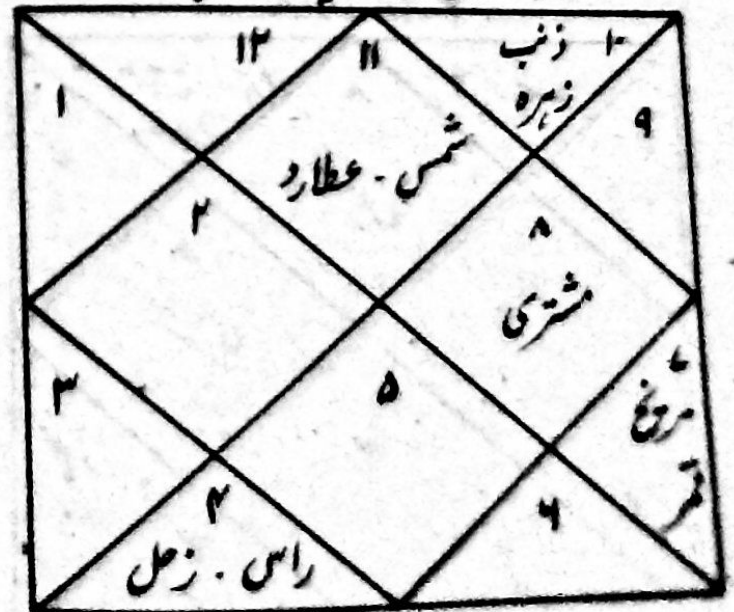 ۱۲
۱۱
۱۰ ذنب
زہرہ
۱
۹
شمس - عطارد
۲
۸
مشتری
۳
۵
۷
مریخ
قمر
۴
راس - زحل
۶